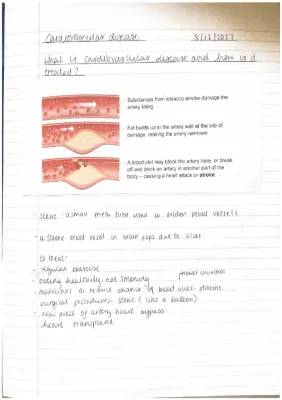 Cardiovascular disease 8/12/2017
What is cardiovascular disease and how is it
treated?
Substances from tobacco smoke damage the
artery lining
Fat builds up in the artery wall at the site of
damage, making the artery narrower
A blood clot may block the artery here, or break
off and block an artery in another part of the
body – causing a heart attack or stroke
a small mesh tube used to widen blood vessels
a stroke - blood vessel in brain due to
to treat:
- regular exercise
- eating healthily, not smoking
- medicines to reduce chance of blood
- surgical procedures - stent (like a balloon)
- new piece of artery - heart bypass
- heart transplant